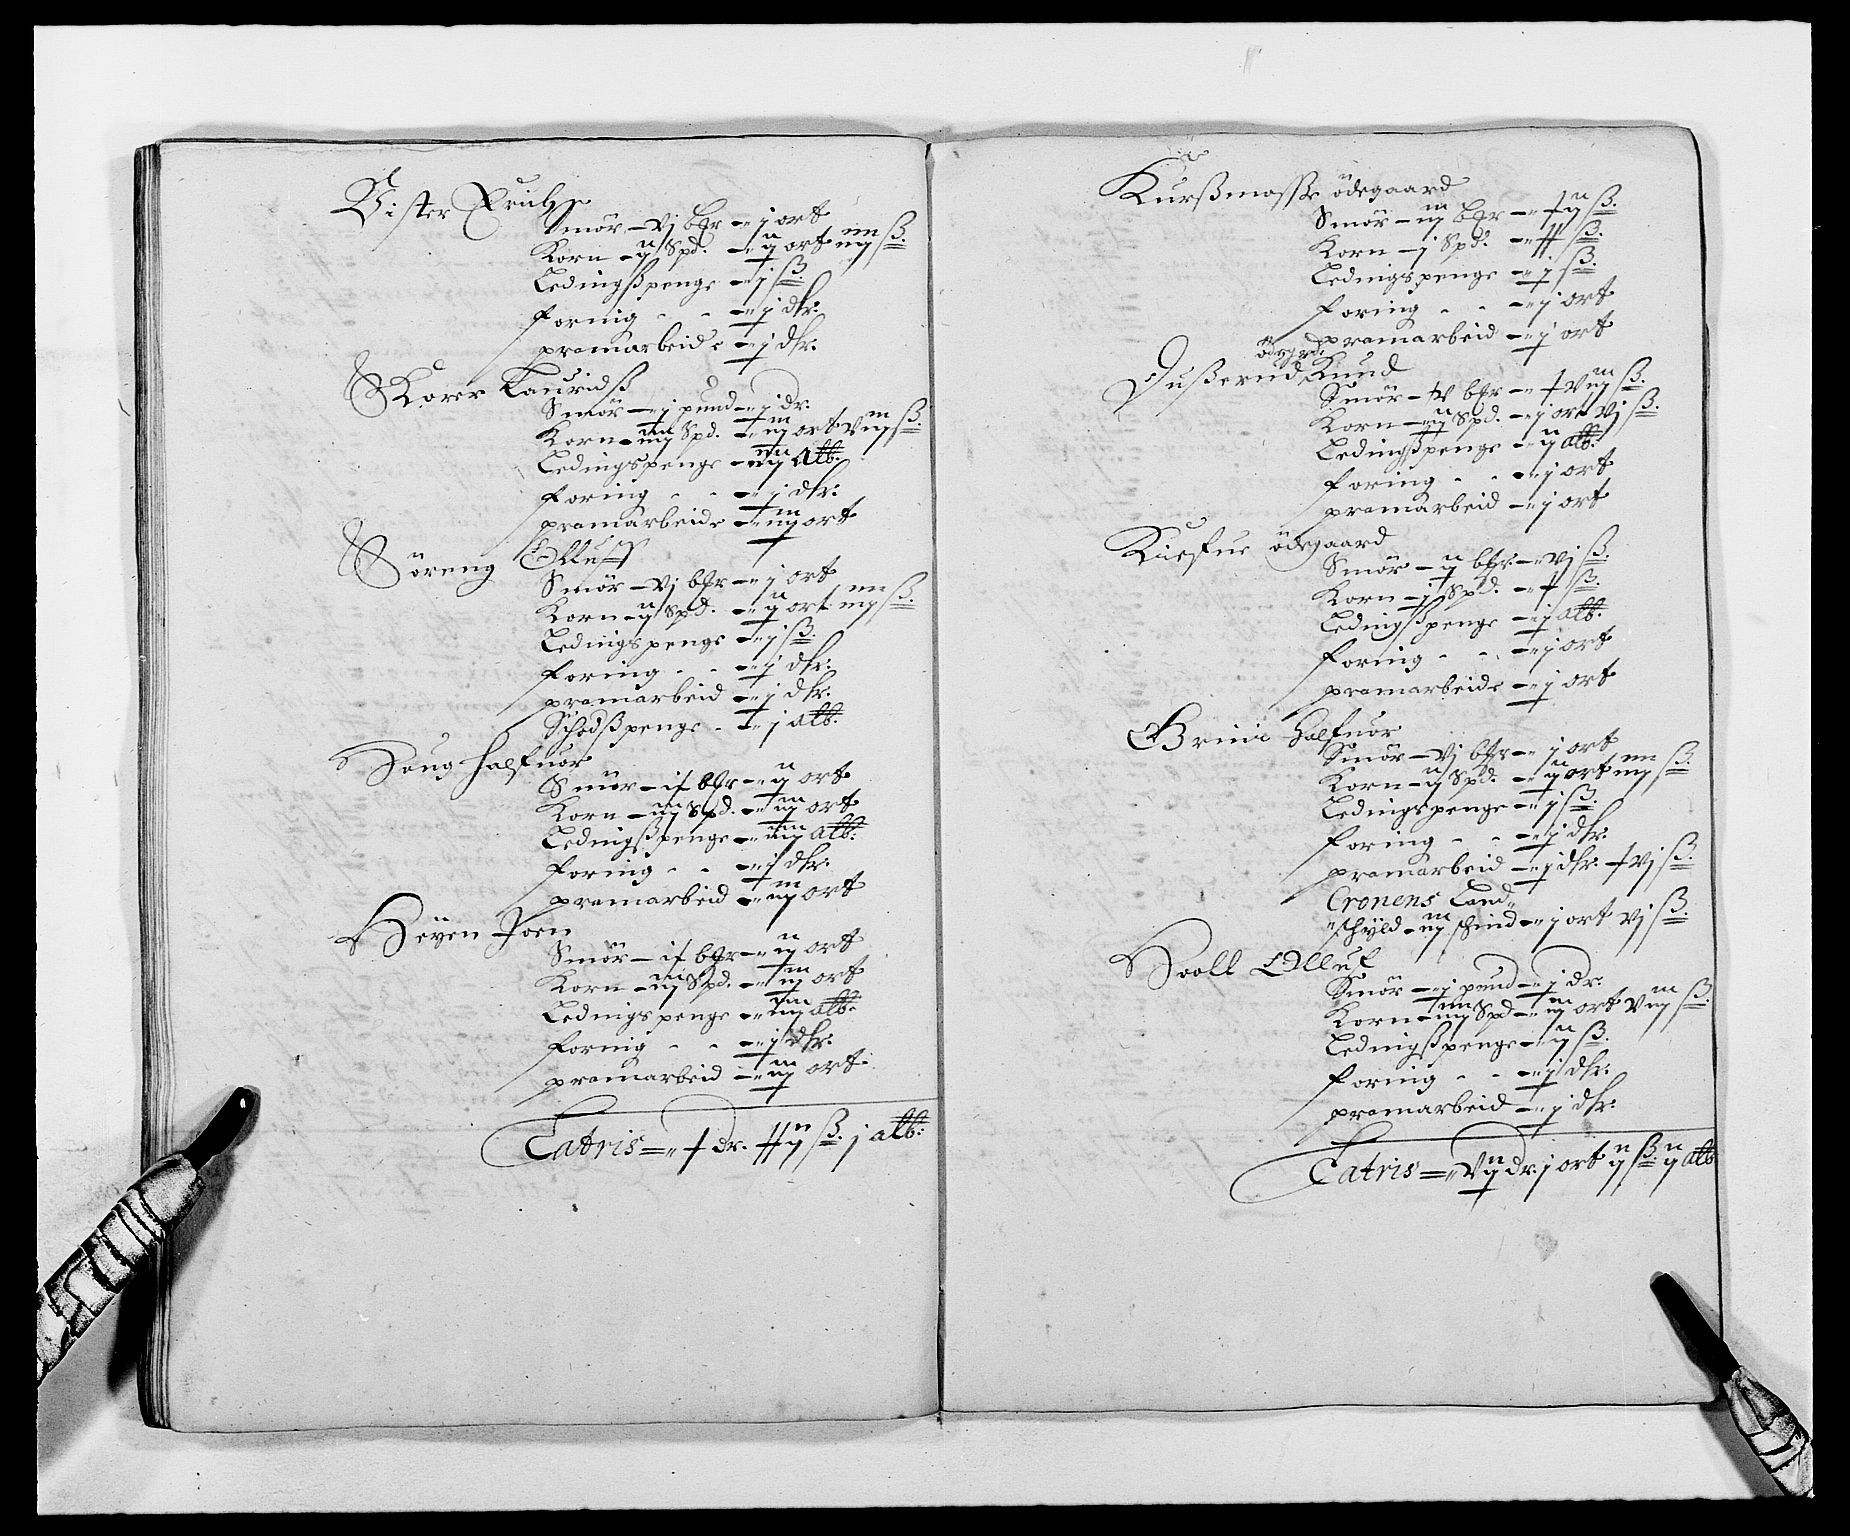 Vister Erichs
Smör – vj bßr – j ort
Korn – ij Spd. – ij ort iiij ß.
Ledingßpenge – j ß.
foring - - – j dlr:
pramarbeide – j dlr.
Skorer Lauridß
Smör – j pund – j dr.
Korn – iiij Spd. – iij ort viij ß.
Ledingspenge – iiij alb.
foring - - – j dlr:
pramarbeide – iij ort
Söreng Olluff
Smör – vj bßr – j ort
Korn – ij Spd. – ij ort iiij ß.
Ledingspenge – j ß.
foring - - – j dlr:
pramarbeid – j dlr.
Schodßpenge - – j alb.
Houg halfuor
Smör – ix bßr – ij ort
Korn – iij Spd. – iij ort
Ledingßpenge – iiij alb:
foring - - – j dlr:
pramarbeid – iij ort
Höyen Joen
Smör – ix bßr – ij ort
Korn – iij Spd. – iij ort
Ledingspenge – iiij alb.
foring - - – j dlr:
pramarbeid – iij ort
Latris = x dr. xxij ß. j alb:
Kurßmosße ödegaard
Smör – iij bßr – xij ß.
Korn – j Spd. – xx ß.
Ledingspenge – j ß.
foring - - – j ort
pramarbeid – j ort
ödegrd:
Dußerud, Knud
Smör – iv bßr – xviij ß.
Korn – ij Spd. – j ort vj ß.
Ledingßpenge – ij alb:
foring - - – j ort
pramarbeid – j ort
Kiesfue ödegaard
Smör – ij bßr. – vj ß.
Korn – j Spd. – x ß.
Ledingßpenge – j alb.
foring - - – j ort
pramarbeide – j ort
Grinie halfuor
Smör – vj bßr – j ort
Korn – ij Spd. – ij ort iiij ß.
Ledingspenge – j ß.
foring - - – j dlr:
pramarbeid – j dlr. xvj ß.
Cronens Land
schyld – iij schind – j ort vj ß.
Hooll Olluf
Smör – j pund – j dr.
Korn – iiij Spd – iij ort viij ß.
Ledingßpenge – ij ß.
foring - - – j dlr:
pramarbeid – j dlr:
Latris = vij dr. j ort ij ß. ij alb